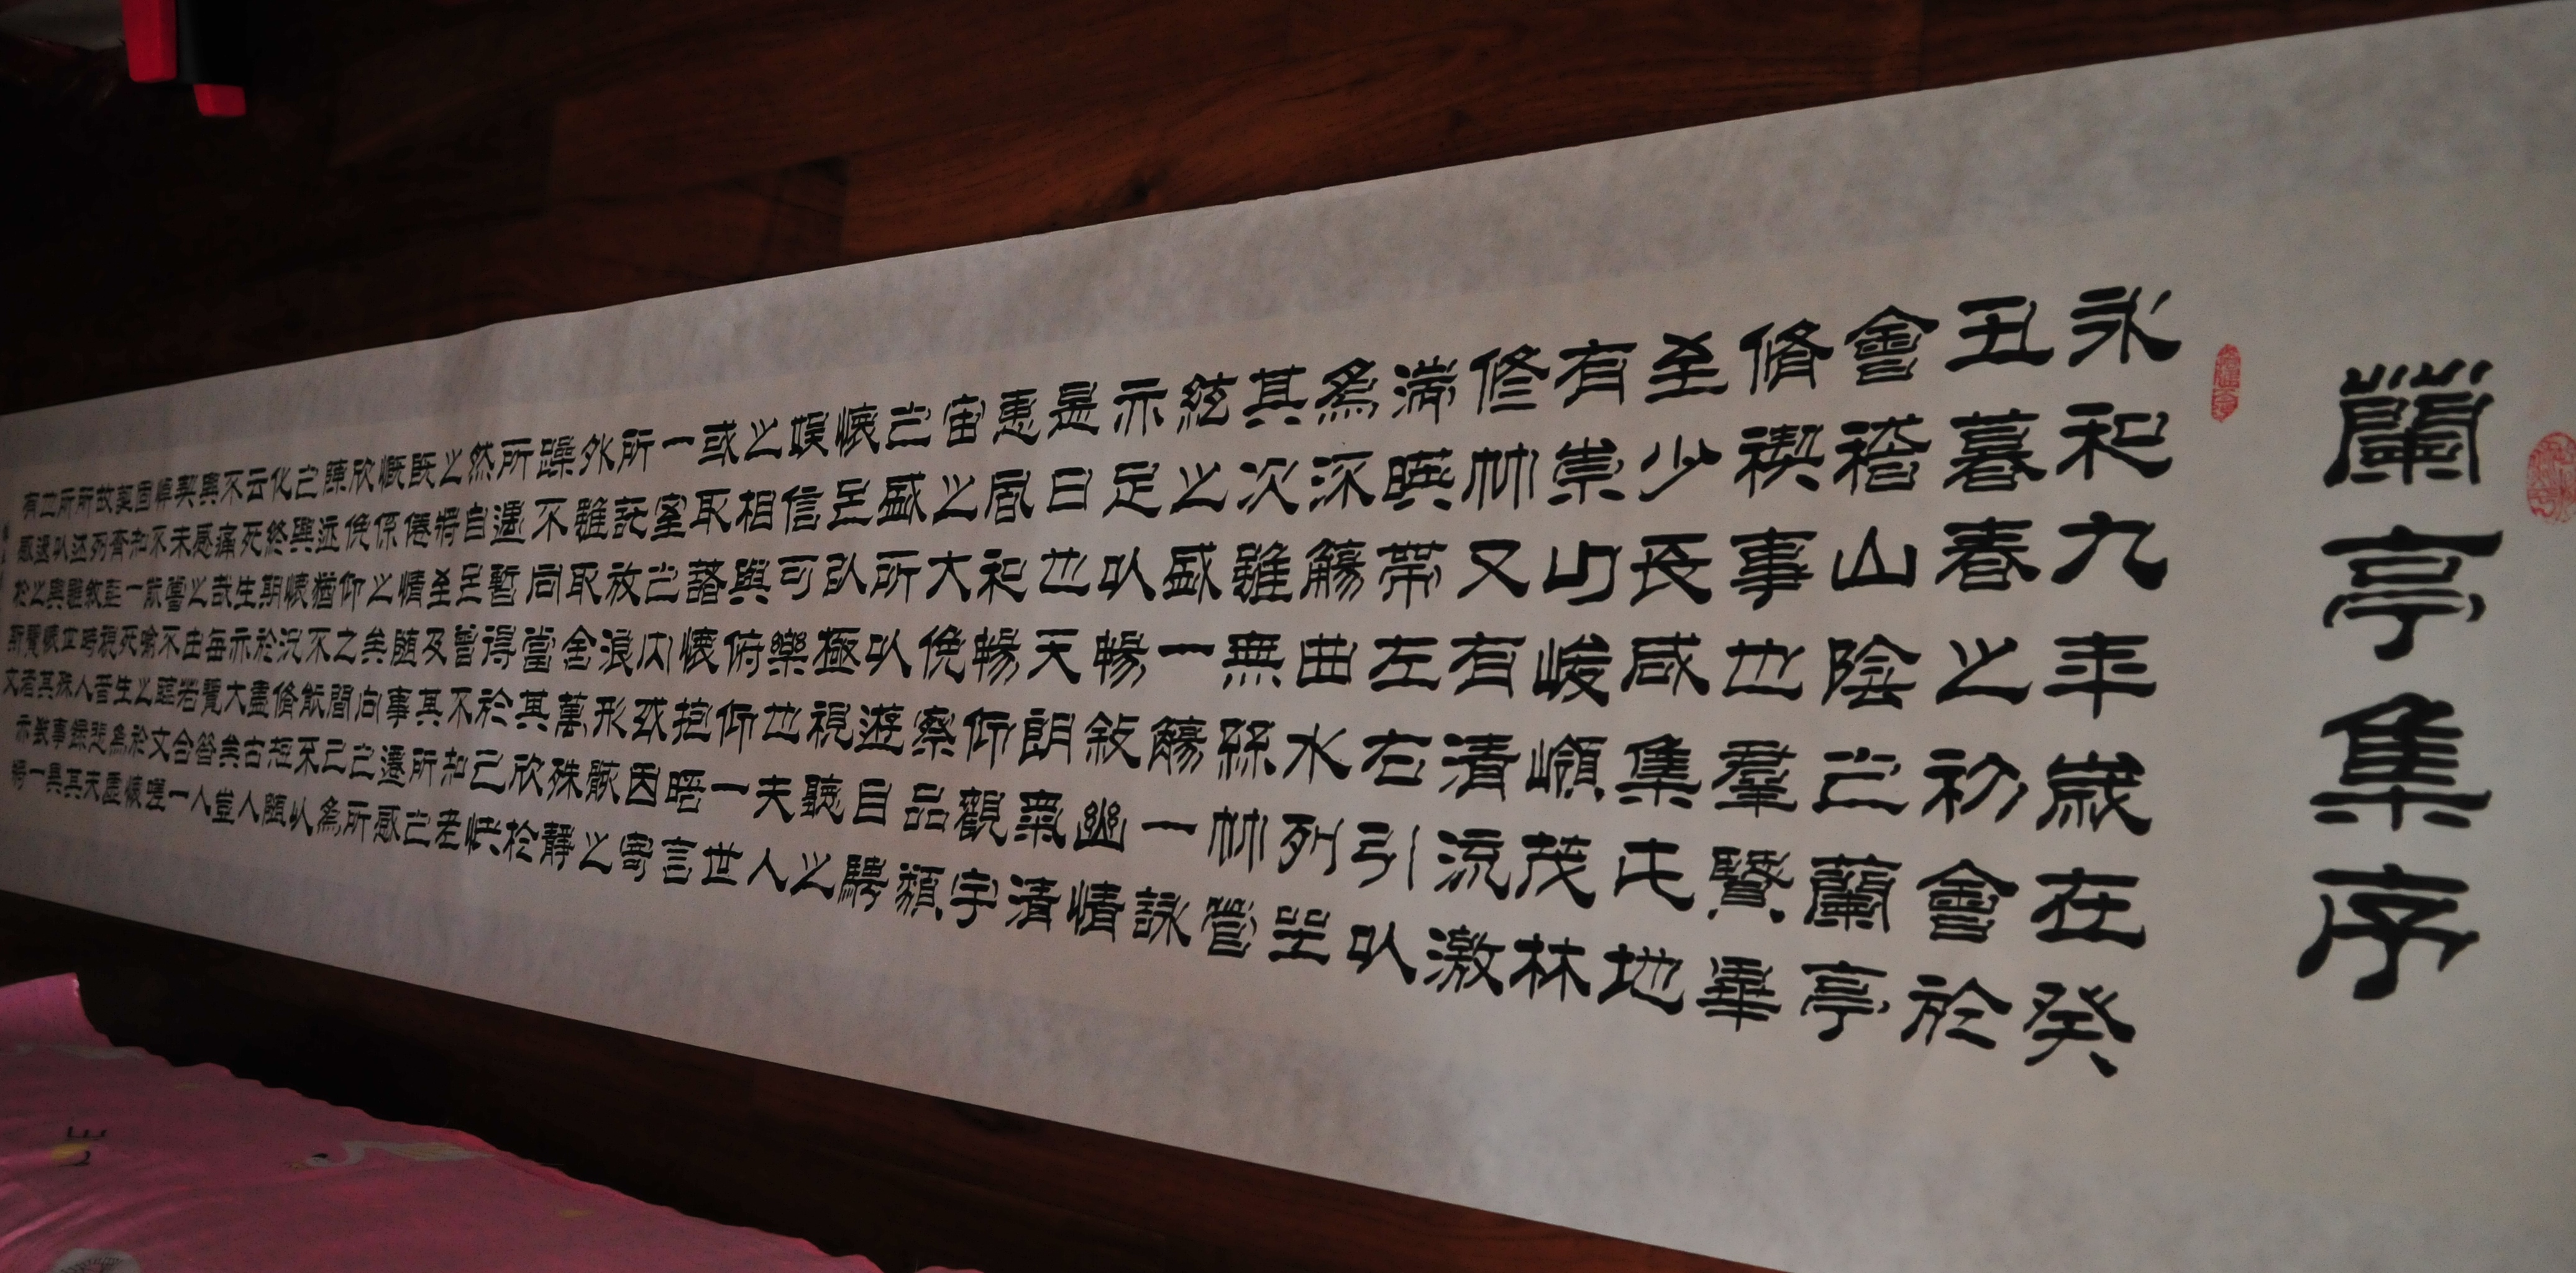 蘭亭集序
永和九年歲在癸
丑暮春之初會於
會稽山陰之蘭亭
脩禊事也羣賢畢
至少長咸集此地
有崇山峻嶺茂林
修竹又有清流激
湍暎帶左右引以
為流觴曲水列坐
其次雖無絲竹管
絃之盛一觴一詠
亦足以暢敘幽情
是日也天朗氣清
惠風和暢仰觀宇
宙之大俛察品類
之盛所以遊目騁
懷足以極視聽之
娛信可樂也夫人
之相與俯仰一世
或取諸懷抱晤言
一室之內或因寄
所託放浪形骸之
外雖取舍萬殊靜
躁不同當其欣於
所遇暫得於己怏
然自足曾不知老
之將至及其所之
既倦情隨事遷感
慨係之矣向之所
欣俛仰之間已為
陳迹猶不能不以
之興懷況脩短隨
化終期於盡古人
云死生亦大矣豈
不痛哉每覽昔人
興感之由若合一
契未嘗不臨文嗟
悼不能喻之於懷
固知一死生為虛
故列敘時人錄其
所述雖世殊事異
所以興懷其致一
有感於斯文